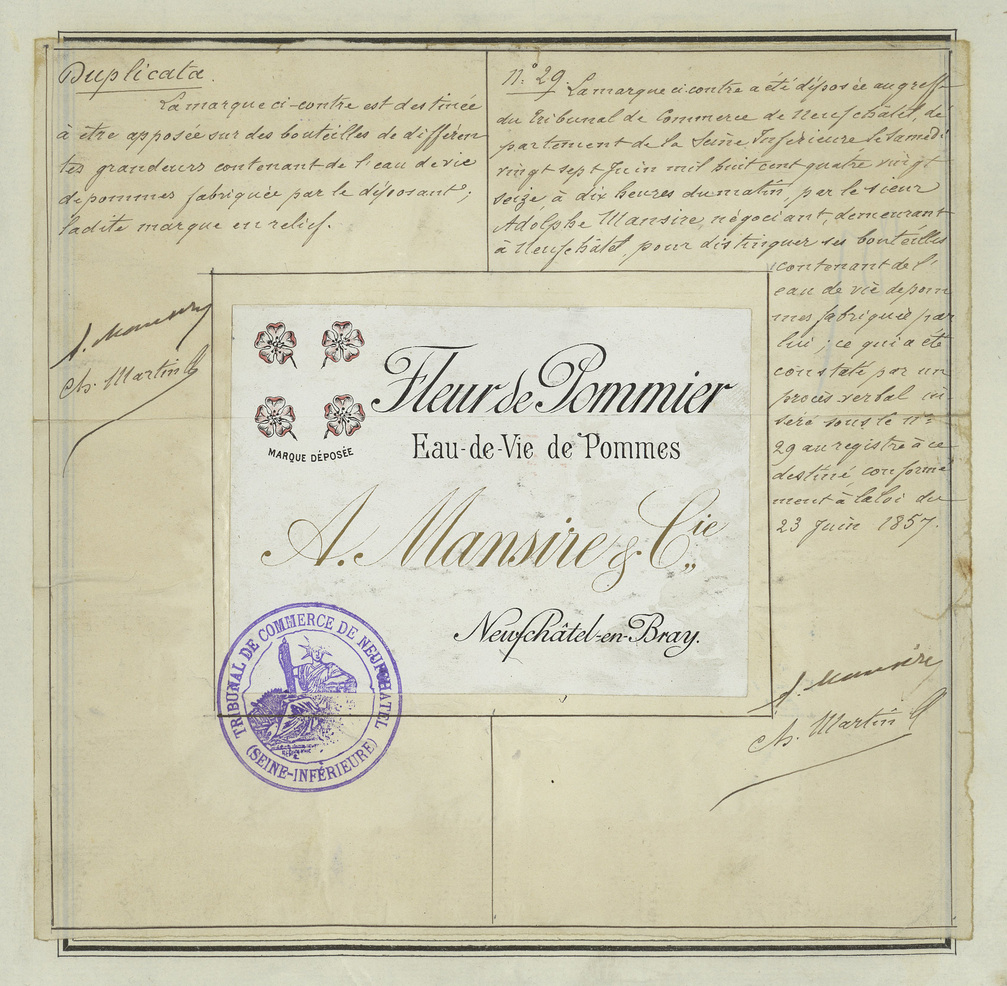 Duplicata.
La marque ci-contre est destinée
à être apposée sur des bouteilles de différen
tes grandeurs contenant de l'eau de vie
de pommes fabriquée par le déposant;
ladite marque en relief.
A. Mansire
Ch. Martin
n° 29. La marque ci contre a été déposée au greffe
du Tribunal de Commerce de Neufchâtel, dé
partement de la Seine Inférieure le samedi
vingt sept Juin mil huit cent quatre vingt
seize à dix heures du matin, par le sieur
Adolphe Mansire, négociant, demeurant
à Neufchâtel, pour distinguer ses bouteilles
contenant de l'
eau de vie de pom
mes fabriquée par
lui; ce qui a été
constaté par un
procès verbal in
séré sous le n°
29 au registre à ce
destiné conformé
ment à la loi du
23 Juin 1857.
A. Mansire
Ch. Martin
Fleur de Pommier
Eau-de-Vie de Pommes
MARQUE DÉPOSÉE
A. Mansire & Cie
Neufchâtel-en-Bray.
TRIBUNAL DE COMMERCE DE NEUFCHATEL
(SEINE-INFÉRIEURE)